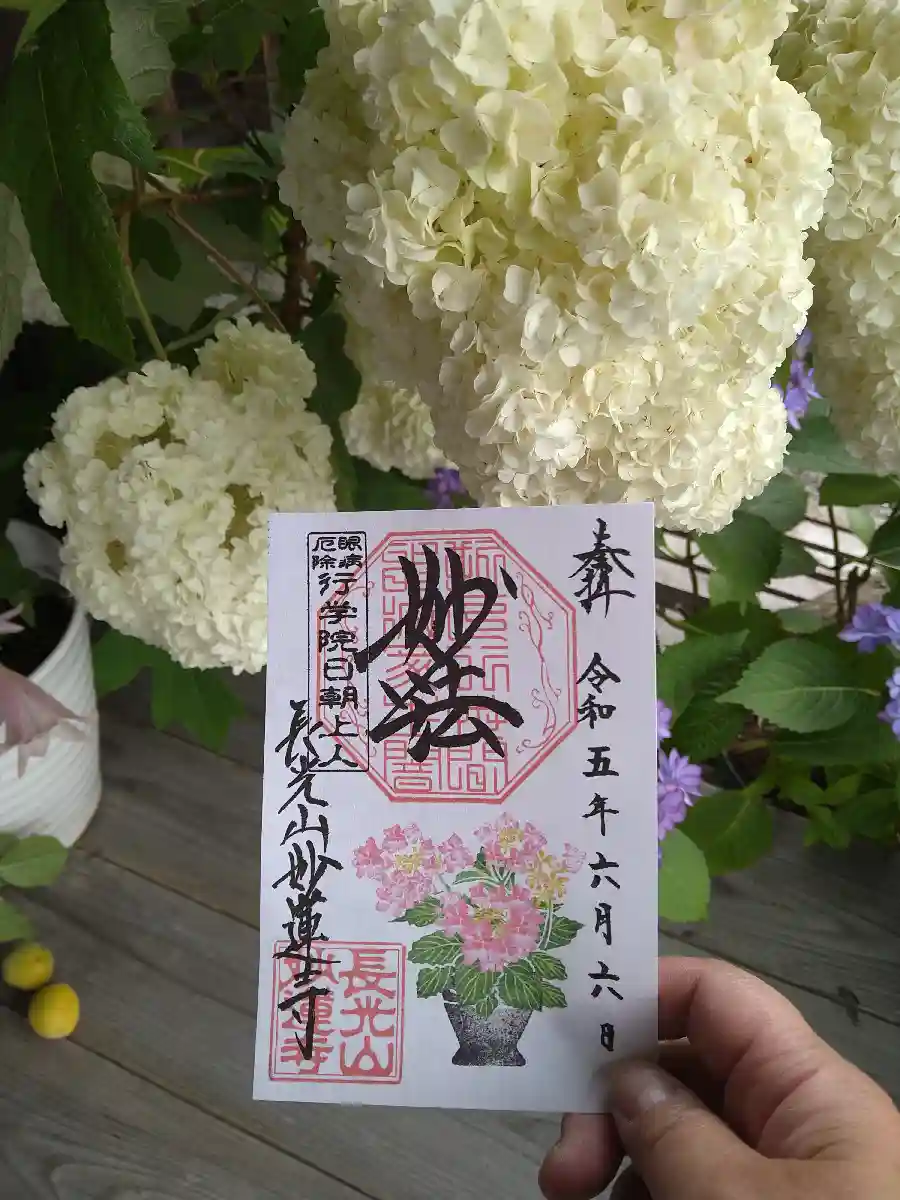 奉拝
令和五年六月六日
妙法
眼病
厄除
行学院日朝上人
長光山妙蓮寺
長光山
妙蓮寺